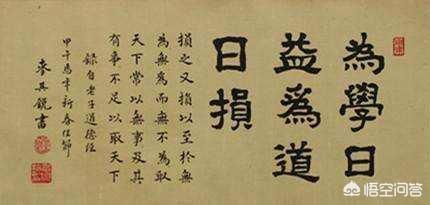 為學日
益爲道
日損
損之又損以至於無
為無為而無不為取
天下常以無事及其
有事不足以取天下
錄自老子道德經
甲午馬年新春佳節
麥其銳書
悟空问答